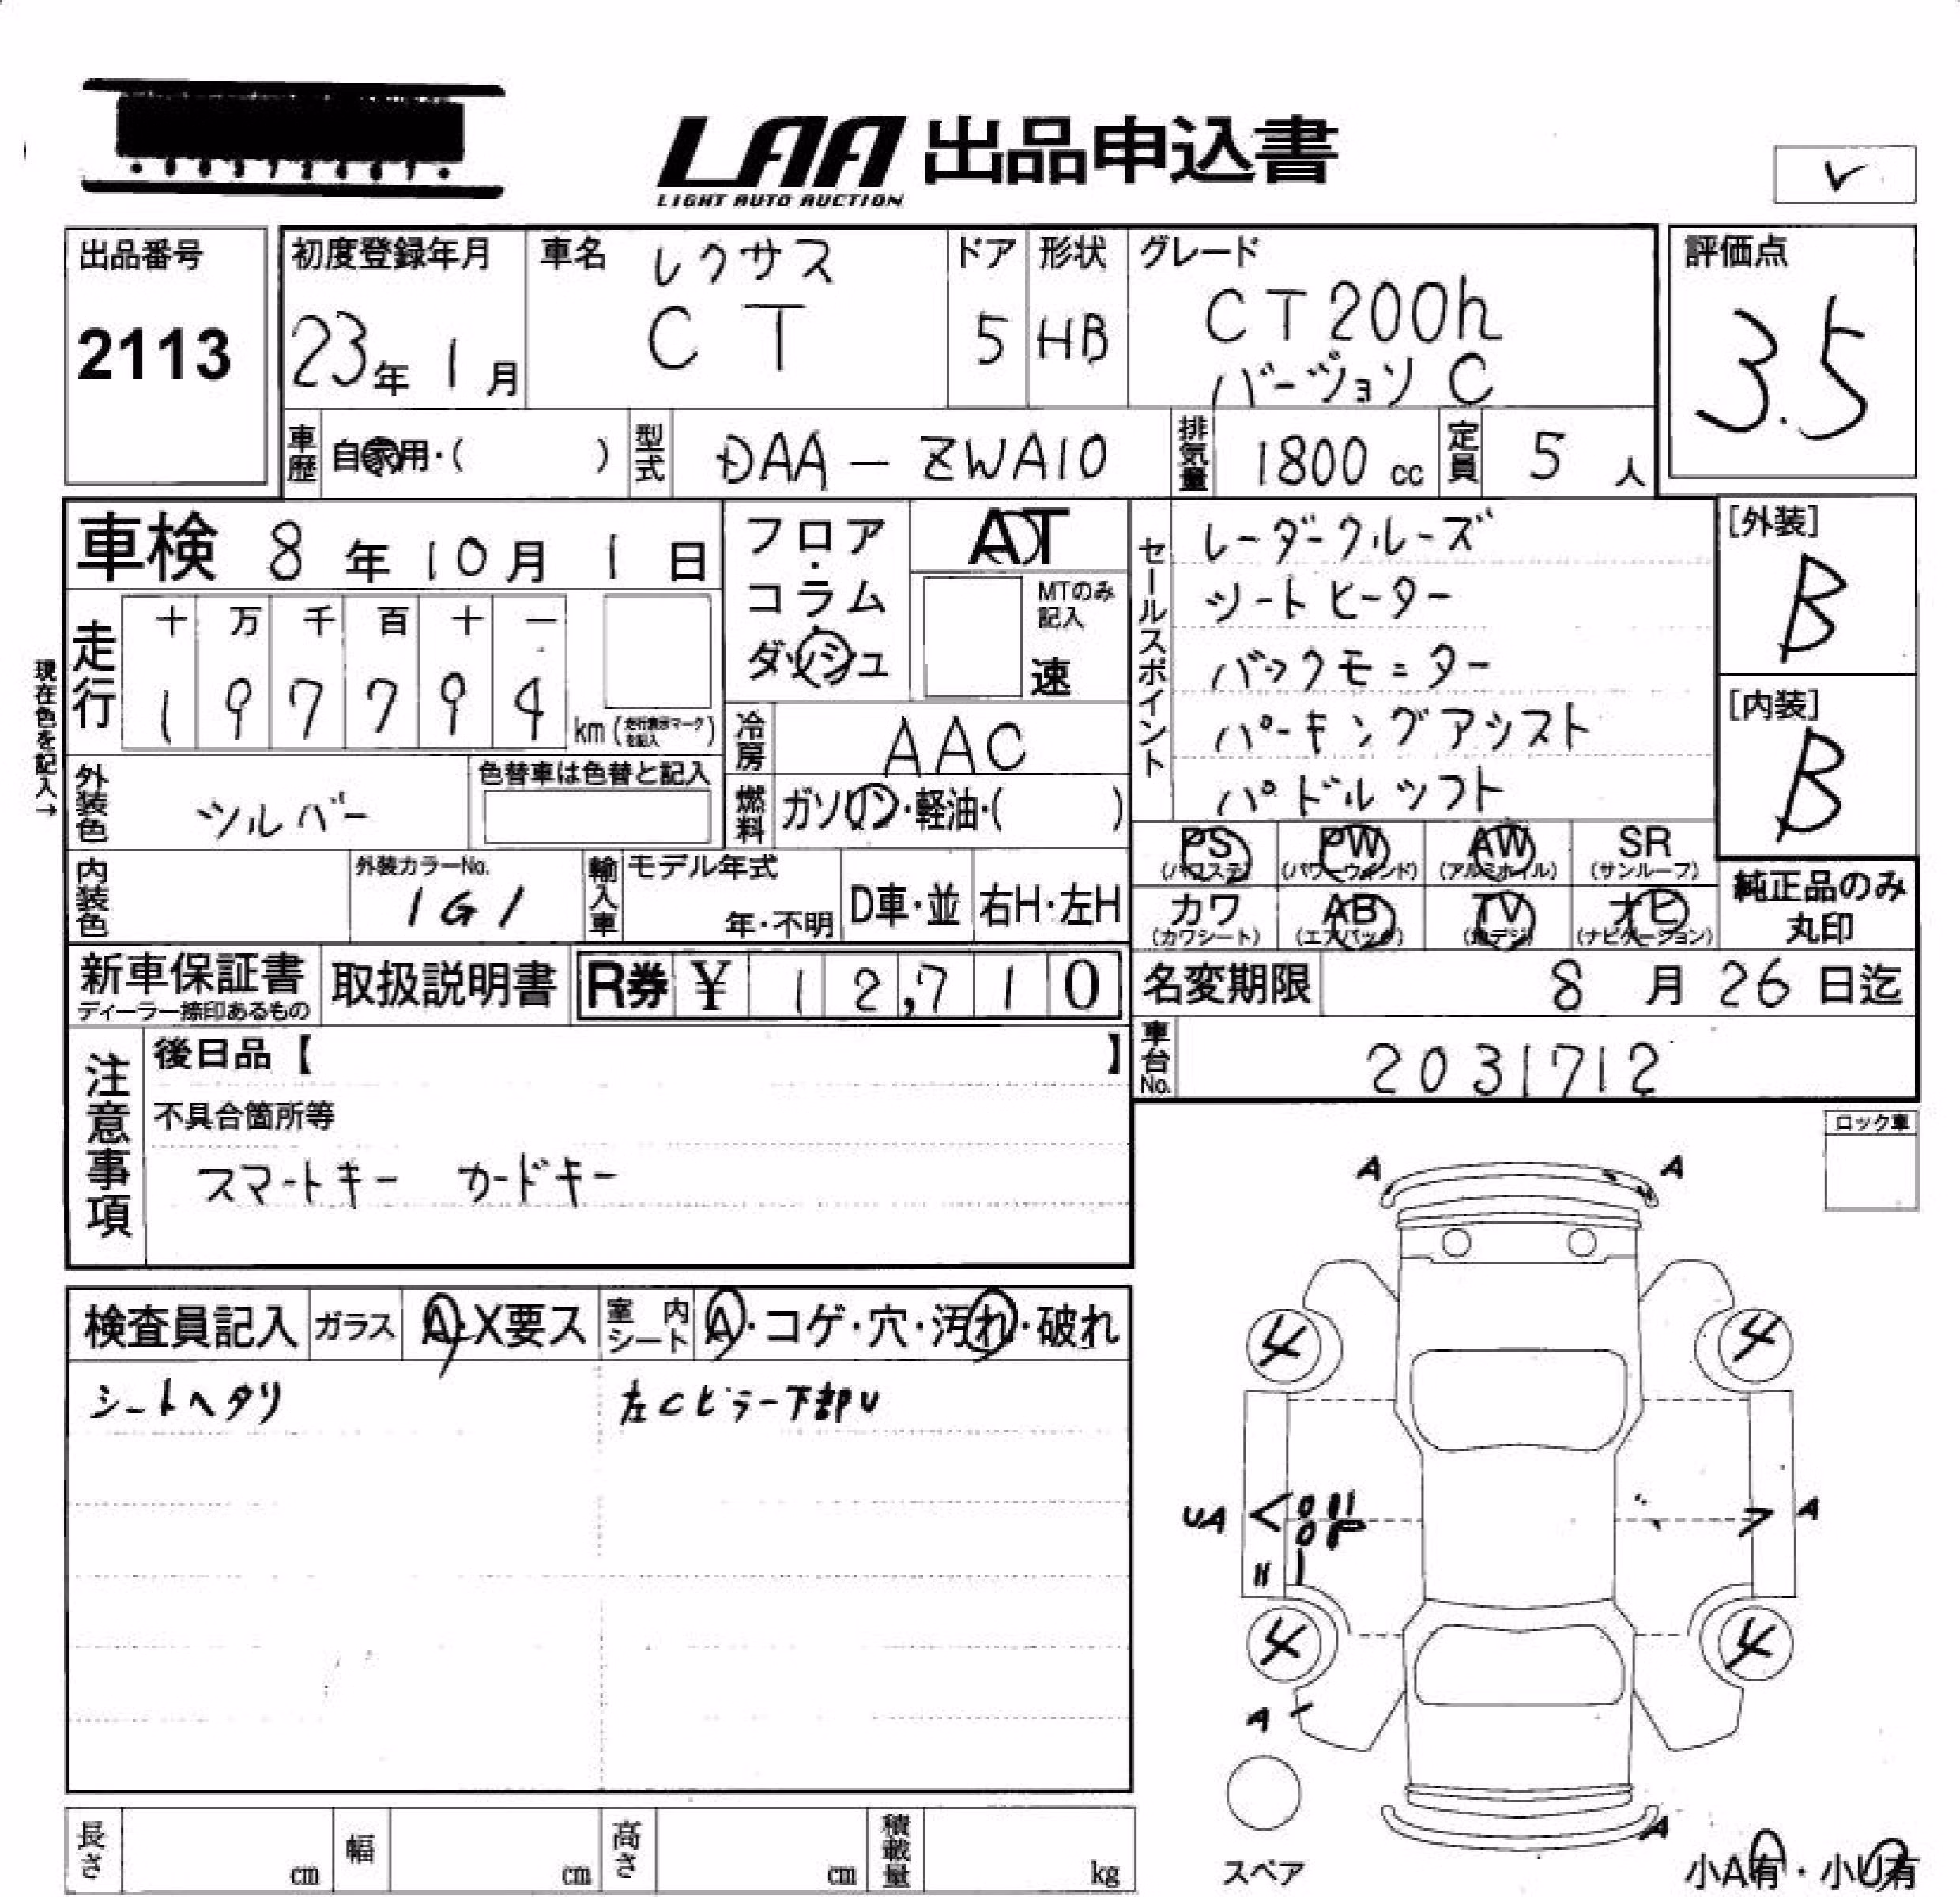 LAA 出品申込書
LIGHT AUTO AUCTION
✓
出品番号
2113
初度登録年月
23年 1月
車名 レクサス
CT
ドア
5
形状
HB
グレード
CT200h
バージョン C
評価点
3.5
車歴 自家用・( )
型式 DAA - ZWA10
排気量 1800 cc
定員 5 人
車検 8年 10月 1日
フロア・コラム・ダッシュ
AT
MTのみ記入
速
セールスポイント
レーダークルーズ
シートヒーター
バックモニター
パーキングアシスト
パドルシフト
[外装]
B
[内装]
B
現在色を記入→
走行
十 万 千 百 十 一
1 9 7 7 9 4
km (走行表示マークを記入)
冷房 AAC
外装色 シルバー
色替車は色替と記入
燃料 ガソリン・軽油・( )
PS (パワステ)
PW (パワーウインド)
AW (アルミホイル)
SR (サンルーフ)
カワ (カワシート)
AB (エアバック)
TV (地デジ)
ナビ (ナビゲーション)
純正品のみ
丸印
内装色
外装カラーNo.
1G1
輸入車
モデル年式
年・不明
D車・並
右H・左H
新車保証書
ディーラー捺印あるもの
取扱説明書
R券 ¥ 12,710
名変期限 8月 26日迄
車台No. 2031712
注意事項
後日品【 】
不具合箇所等
スマートキー カードキー
ロック車
検査員記入 ガラス A・X要ス 室内シート A・コゲ・穴・汚れ・破れ
シートヘタリ
左Cピラー下部U
A A
4 4
UA A
4 4
A
A
スペア
小A有・小U有
長さ cm 幅 cm 高さ cm 積載量 kg